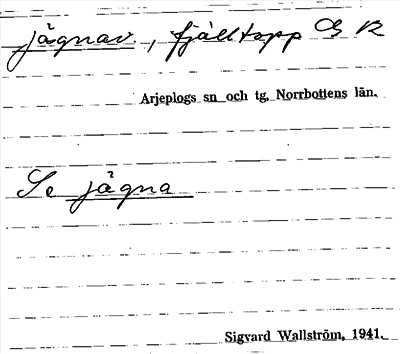 jågnav, fjälltopp
Arjeplogs sn och tg, Norrbottens län.
Se jågna
Sigvard Wallström, 1941.